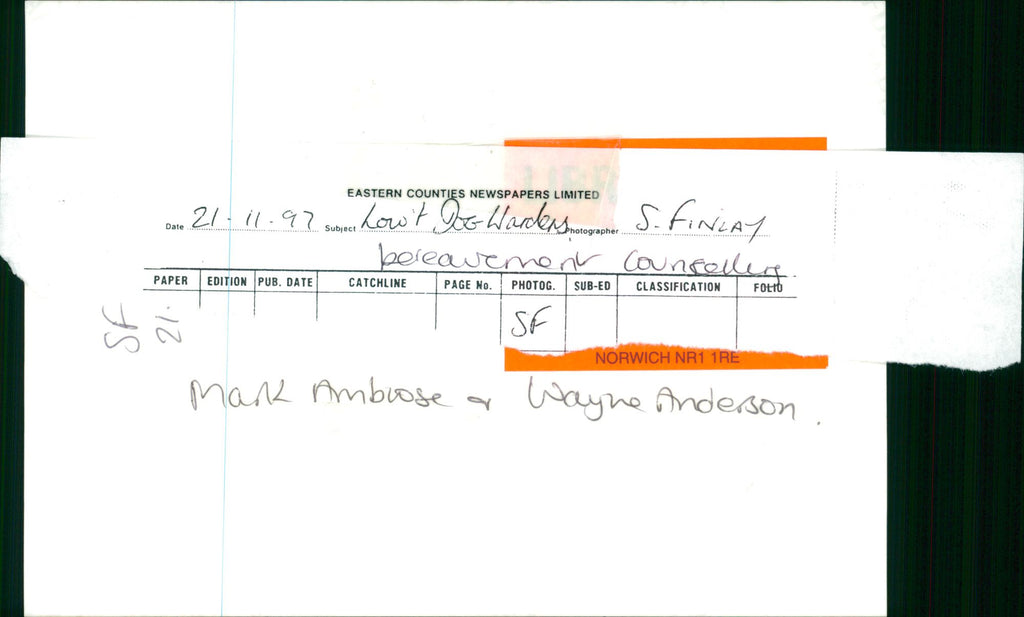 EASTERN COUNTIES NEWSPAPERS LIMITED
Date 21-11-97 Subject Low't Dog Wardens Photographer S. FINLAY
bereavement counselling.
PAPER EDITION PUB. DATE CATCHLINE PAGE No. PHOTOG. SUB-ED CLASSIFICATION FOLIO
SF
SF
21.
NORWICH NR1 1RE
Mark Ambrose & Wayne Anderson.